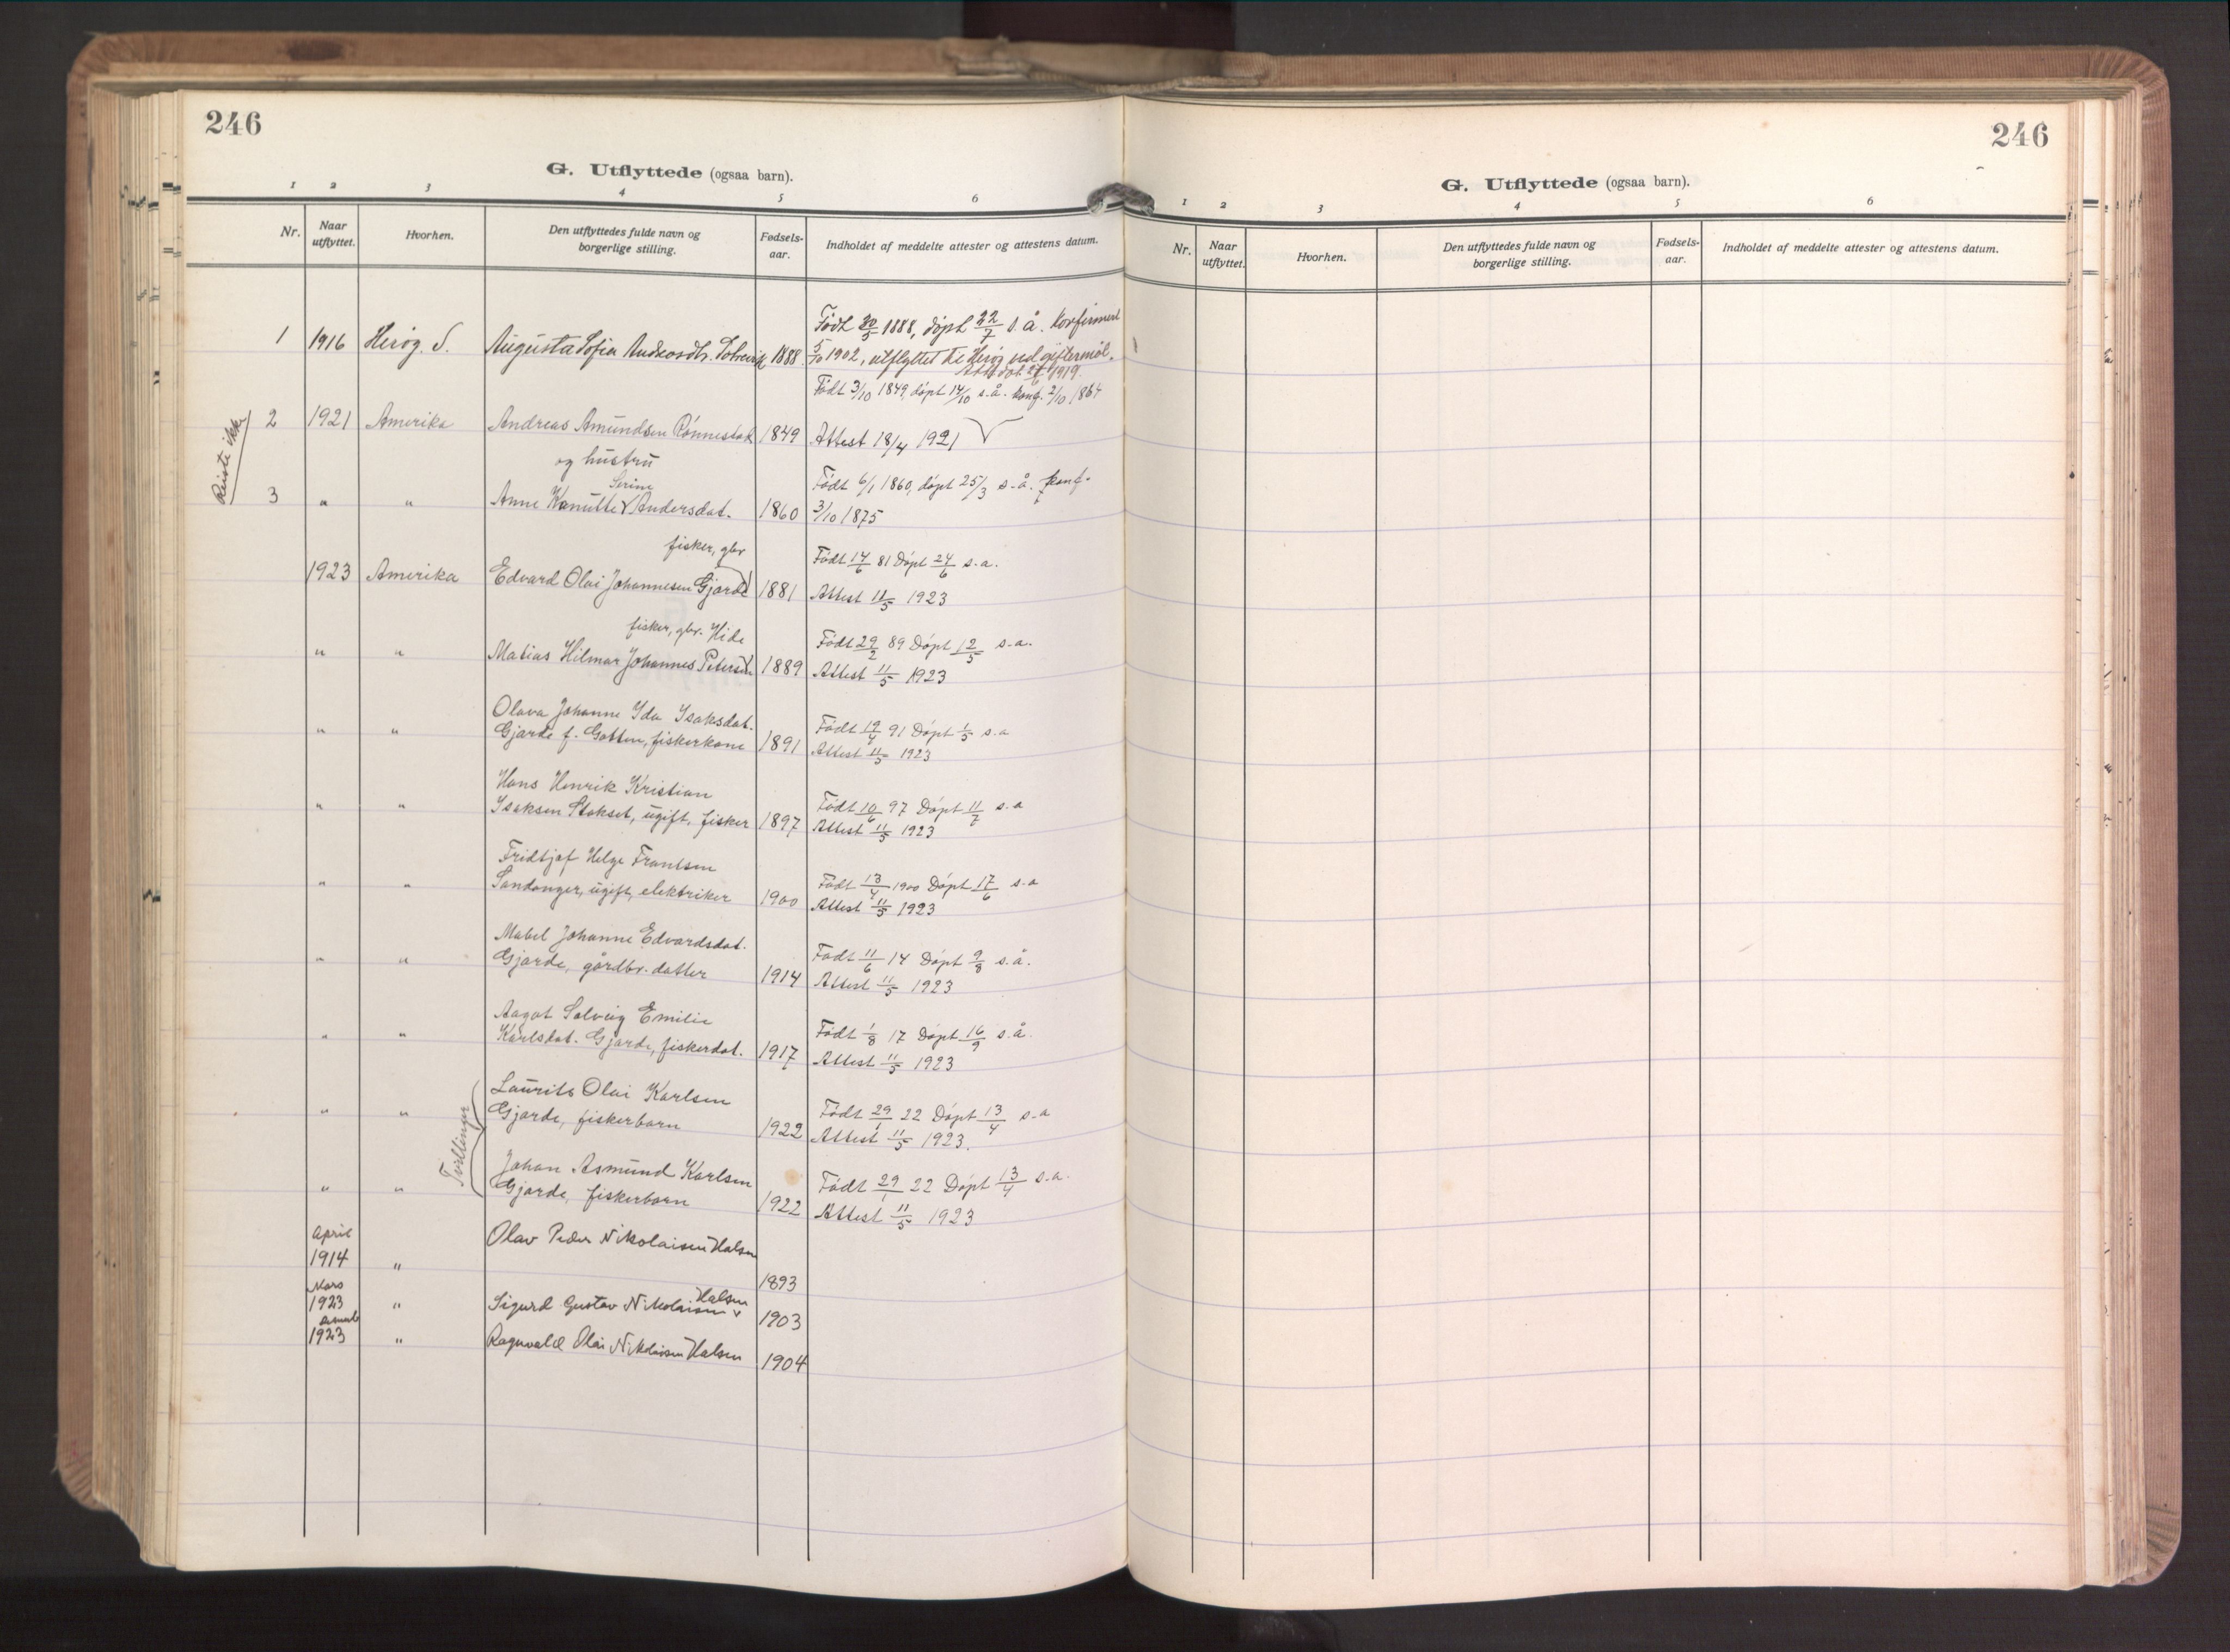 246
G. Utflyttede (ogsaa barn).
1 2 3 4 5 6
Nr. Naar utflyttet. Hvorhen. Den utflyttedes fulde navn og borgerlige stilling. Fødsels-aar. Indholdet af meddelte attester og attestens datum.
Født 20/5 1888, døpt 22/7 s. å. Konfirmert
1 1916 Herøy. S. Augusta Sofia Andreasdtr. 1888 5/10 1902, utflyttet til Herøy ved giftermål.
1919.
Født 3/10 1849, døpt 14/10 s.å. konf. 2/10 1864
Reiste ikke
2 1921 Amerika Andreas Amundsen Rønnestak 1849 Attest 18/4 1921
og hustru
Serine
Født 6/1 1860, døpt 25/3 s.å. konf.
3 " " Anne Kanutte Andersdat. 1860 3/10 1875
fisker, gbr
Født 14/6 81 Døpt 24/6 s.a.
1923 Amerika Edvard Olai Johannesen Gjarde 1881 Attest 11/5 1923
fisker, gbr. Hide
Født 29/2 89 Døpt 12/5 s.a.
" " Matias Hilmar Johannes Petersen 1889 Attest 11/5 1923
Olava Johanne Ida Isaksdat.
Født 19/4 91 Døpt 1/5 s.a
" " Gjarde f. Gotten, fiskerkone 1891 Attest 11/5 1923
Hans Henrik Kristian
Født 10/6 97 Døpt 11/7 s.a
" " Isaksen Stokset, ugift, fisker 1897 Attest 11/5 1923
Fridtjof Helge Frantsen
Født 13/4 1900 Døpt 17/6 s.a
" " Sandanger, ugift, elektriker 1900 Attest 11/5 1923
Mabel Johanne Edvardsdat.
Født 11/6 14 Døpt 9/8 s.å.
" " Gjarde, gårdbr. datter 1914 Attest 11/5 1923
Aagot Solveig Emilie
Født 1/8 17 Døpt 16/9 s.å.
" " Karlsdat. Gjarde, fiskerdat. 1917 Attest 11/5 1923
Tvillinger
Laurits Olai Karlsen
Født 29/1 22 Døpt 13/4 s.a
" " Gjarde, fiskerbarn 1922 Attest 11/5 1923.
Johan Asmund Karlsen
Født 29/1 22 Døpt 13/4 s.a.
" " Gjarde, fiskerbarn 1922 Attest 11/5 1923
April
1914 " Olav Peder Nikolaisen Halsen 1893
Mars
1923 " Sigurd Gustav Nikolaisen Halsen 1903
1923 " Ragnvald Olai Nikolaisen Halsen 1904
246
G. Utflyttede (ogsaa barn).
1 2 3 4 5 6
Nr. Naar utflyttet. Hvorhen. Den utflyttedes fulde navn og borgerlige stilling. Fødsels-aar. Indholdet af meddelte attester og attestens datum.